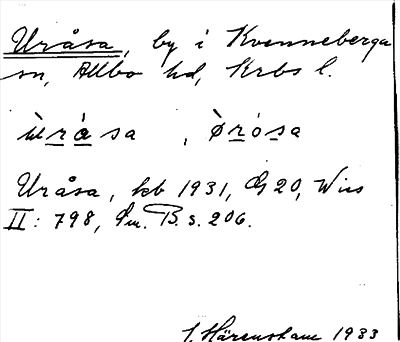 Uråsa, by i Kvenneberga
sn, Allbo hd, Krbs l.
ùràsa, òrósa
Uråsa, kb 1931, G 20, Wies
II: 798, Sm. B. s. 206.
J. Härenstam 1933